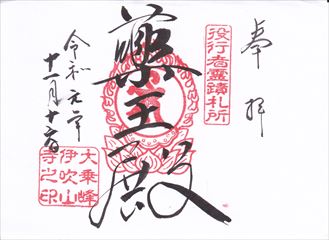 奉拝
役行者霊蹟札所
薬王殿
令和元年
十一月十六日
大乗峰
伊吹山
寺之印